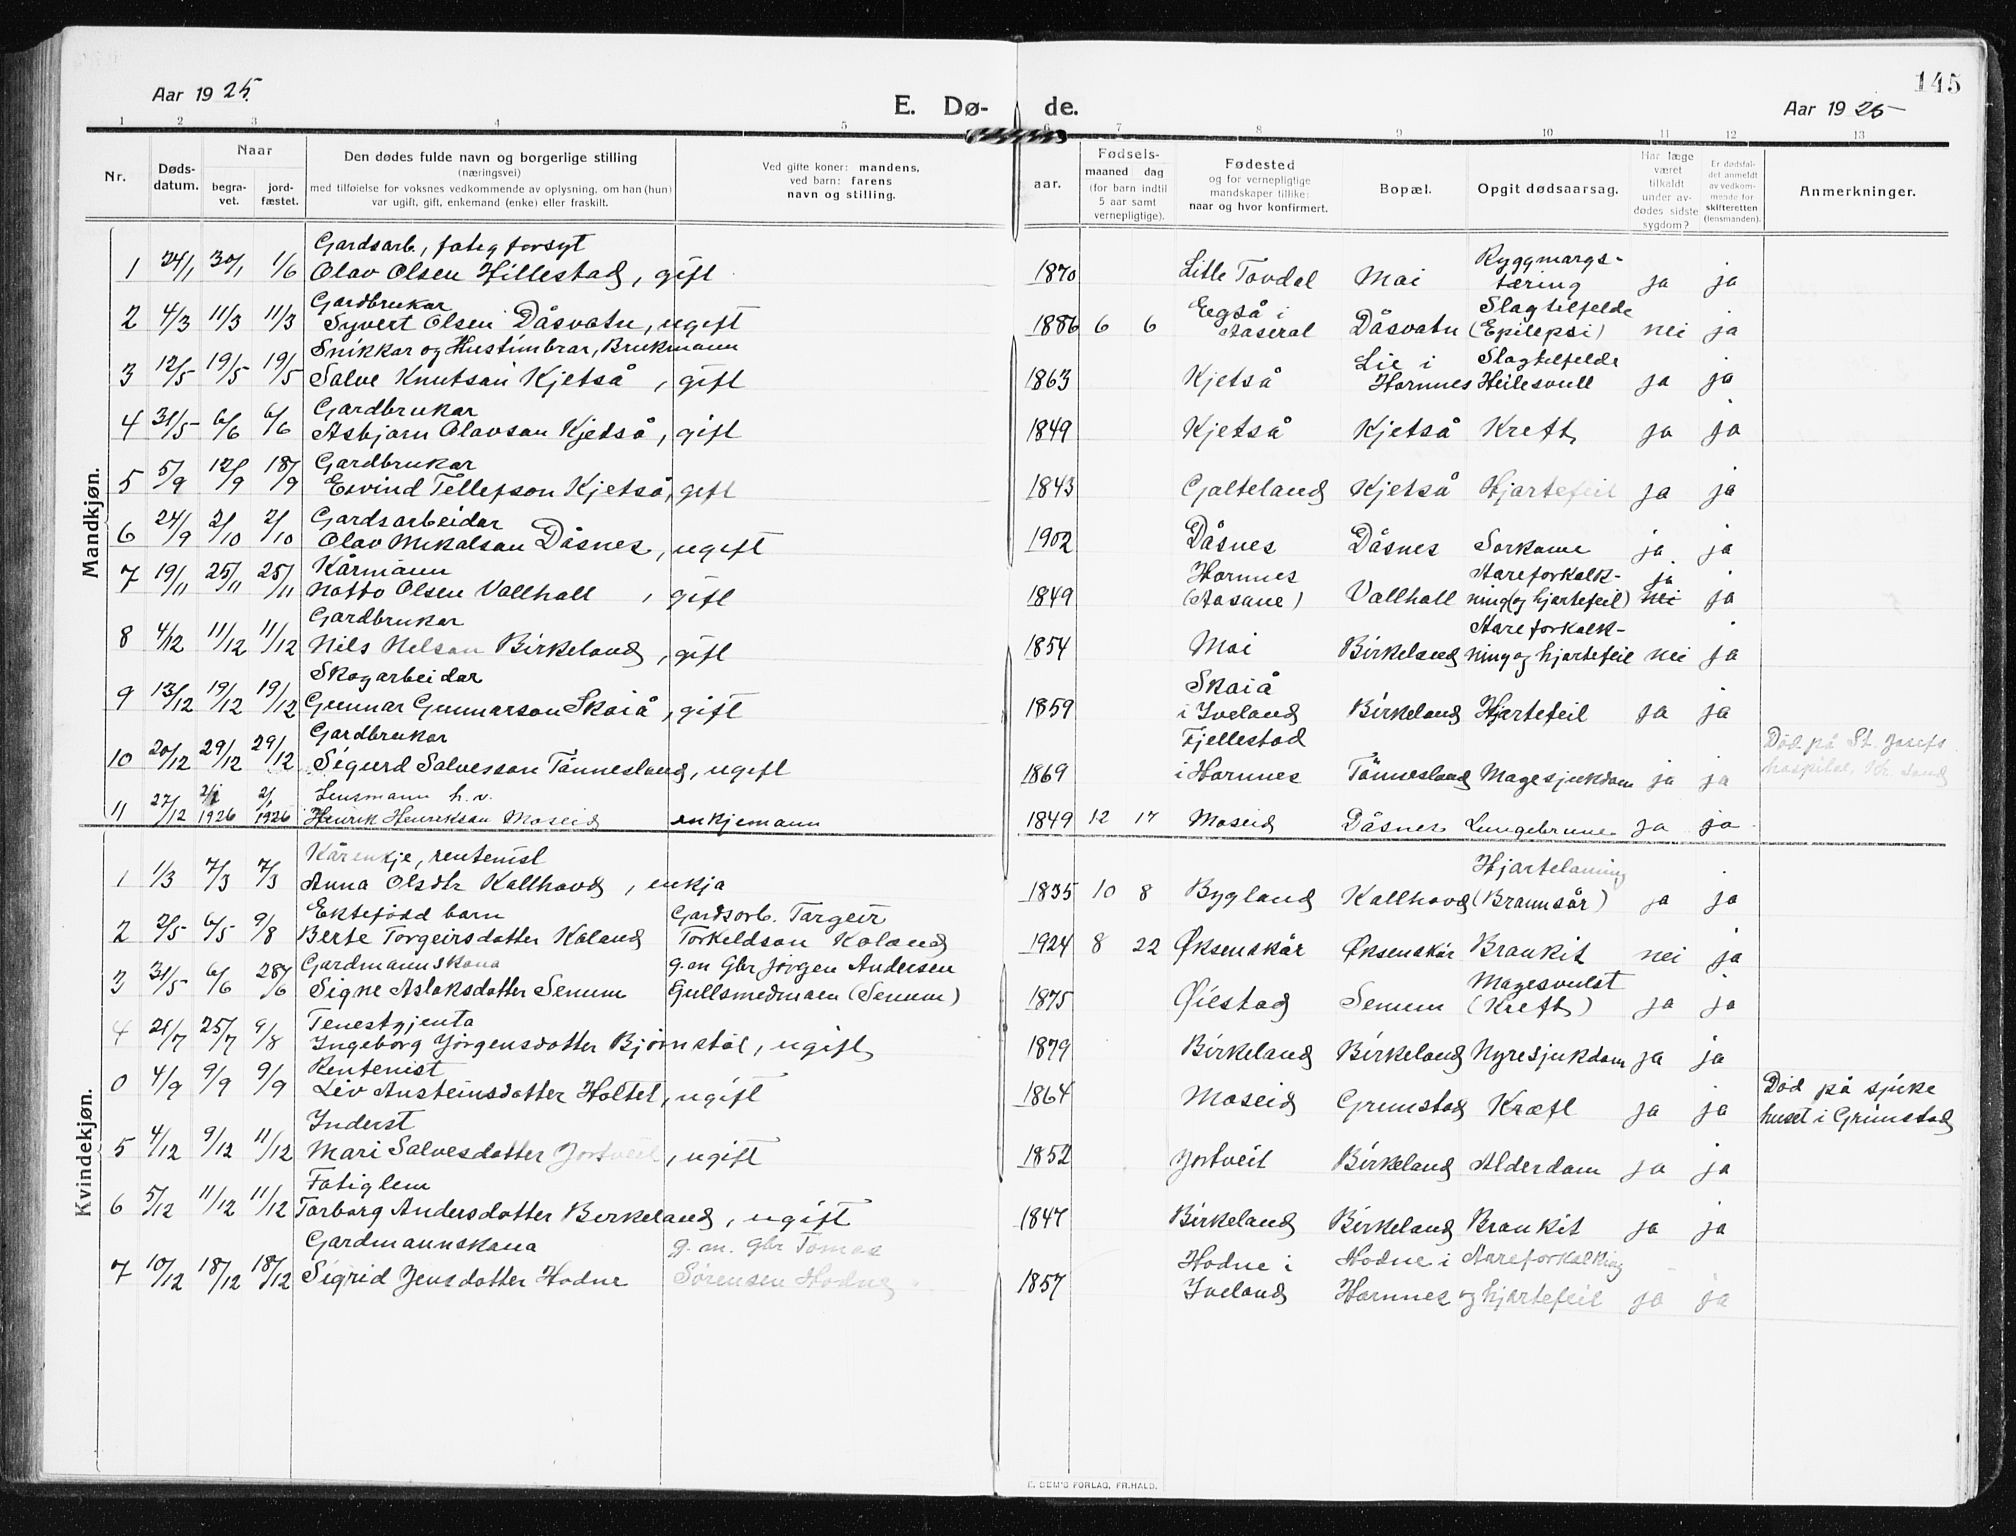 145
Aar 1925.
E. Dø-
de.
Aar 1925
1 2 3 4 5 6 7 8 9 10 11 12 13
Nr.
Døds-
datum.
Naar
begra-
vet.
jord-
fæstet.
Den dødes fulde navn og borgerlige stilling
(næringsvei)
med tilføielse for voksnes vedkommende av oplysning, om han (hun)
var ugift, gift, enkemand (enke) eller fraskilt.
Ved gifte koner: mandens,
ved barn: farens
navn og stilling.
aar.
Fødsels-
maaned dag
(for barn indtil
5 aar samt
vernepligtige).
Fødested
og for vernepligtige
mandskaper tillike:
naar og hvor konfirmert.
Bopæl.
Opgit dødsaarsag.
Har læge
været
tilkaldt
under av-
dødes sidste
sygdom?
Er dødsfal-
det anmeldt
av vedkom-
mende for
skifteretten
(lensmanden).
Anmerkninger.
Mandkjøn.
Gardsarb., fatig forsyt Ryggmargs-
1 24/1 30/1 1/6 Olav Olsen Hillestad, gift 1870 Litle Tovdal Moi tæring ja ja
Gardbrukar Eegså i Slagtilfelde
2 4/3 11/3 11/3 Syvert Olsen Dåsvatn, ugift 1886 6 6 Aaseral Dåsvatn (Epilepsi) nei ja
Snikkar og Hustimbrar, Brukmann Lie i Slagtilfelde
3 12/5 19/5 19/5 Salve Knutson Kjetså, gift 1863 Kjetså Hornnes Heilesvull ja ja
Gardbrukar
4 31/5 6/6 6/6 Asbjørn Olavson Kjetså, gift 1849 Kjetså Kjetså Kreft ja ja
Gardbrukar
5 5/9 12/9 18/9 Eivind Tellefson Kjetså, gift 1843 Galteland Kjetså Hjartefeil ja ja
Gardsarbeidar
6 24/9 2/10 2/10 Olav Mikalson Dåsnes, ugift 1902 Dåsnes Dåsnes Sarkome ja ja
Kårmann Hornnes Aareforkalk- ja
7 19/11 25/11 25/11 Notto Olsen Vallhall, gift 1849 (Aasane) Vallhall ning (og hjartefeil) nei ja
Gardbrukar Aareforkalk-
8 4/12 11/12 11/12 Nils Nelson Birkeland, gift 1854 Moi Birkeland ning og hjartefeil nei ja
Skogarbeidar Skaiå
9 13/12 19/12 19/12 Gunnar Gunnarson Skaiå, gift 1859 i Iveland Birkeland Hjartefeil ja ja
Gardbrukar Fjellestad Død på St. Josefs
10 20/12 29/12 29/12 Sigurd Salvesson Tånnesland, ugift 1869 i Hornnes Tånnesland Magesjukdom ja ja hospital, Kr.sand
Lensmann h.v.
11 27/12 2/1 1926 2/1 1926 Henrik Henrikson Moseid enkjemann 1849 12 17 Moseid Dåsnes Lungebrune ja ja
Kvindekjøn.
Kårenkje, rentenist Hjartelaming
1 1/3 7/3 7/3 Anna Olsdtr Kallhovd, enkja 1835 10 8 Bygland Kallhovd (Brannsår) ja ja
Ektefødd barn Gardsarb. Targeir
2 2/5 6/5 9/8 Berte Torgeirsdatter Kaland Torkeldson Kaland 1924 8 22 Øksenskår Øksenskår Bronkit nei ja
Gardmannskona g.m. Gbr Jørgen Andersen Magesvulst
3 31/5 6/6 28/6 Signe Aslaksdotter Senum Gullsmedmoen (Senum) 1875 Øiestad Senum (Kreft) ja ja
Tenestgjenta
4 21/7 25/7 9/8 Ingeborg Jørgensdotter Bjørnstøl, ugift 1879 Birkeland Birkeland Nyresjukdom ja ja
Rentenist Død på sjuke
0 4/9 9/9 9/9 Liv Austeinsdotter Holtet, ugift 1864 Moseid Grimstad Kræft ja ja huset i Grimstad
Inderst
5 4/12 9/12 11/12 Mari Salvesdotter Jortveit, ugift 1852 Jortveit Birkeland Alderdom ja ja
Fatiglem
6 5/12 11/12 11/12 Torborg Andersdotter Birkeland, ugift 1847 Birkeland Birkeland Bronkit ja ja
Gardmannskona g. m. gbr Tomas Hodne i Hodne i Aareforkalking
7 10/12 18/12 18/12 Sigrid Jensdotter Hodne Sørensen Hodne 1857 Iveland Hornnes og hjartefeil ja ja
E. SEM'S FORLAG, FR.HALD.